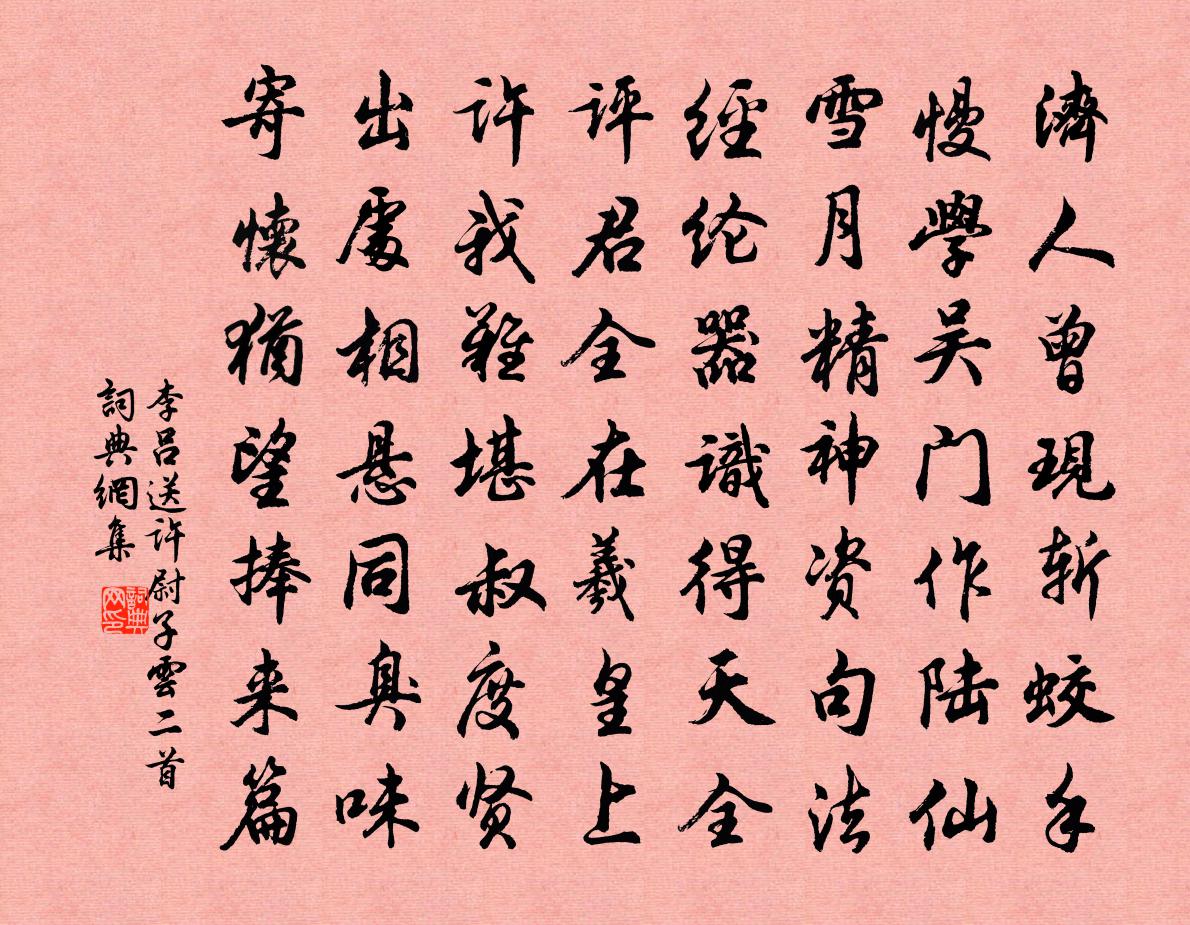 濟人曾現斬蛟手
慢學吴门作陆仙
雪月精神资句法
經纶器識得天全
评君全在羲皇上
许我難堪叔度贤
出處相悬同臭味
寄懷猶望捧来篇
李吕送许尉子雲二首
詞典網集
詞典网印